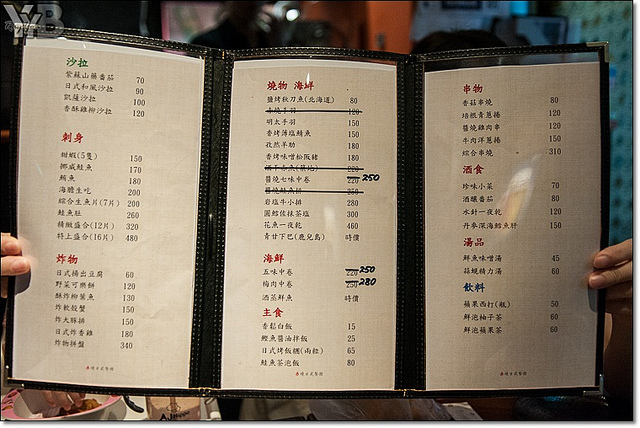 沙拉
紫蘇山藥番茄 70
日式和風沙拉 90
凱薩沙拉 100
香酥雞柳沙拉 120
刺身
甜蝦(5隻) 150
挪威鮭魚 170
鮪魚 180
海膽生吃 200
綜合生魚片(7片) 200
鮭魚肚 260
精緻盛合(12片) 320
特上盛合(16片) 480
炸物
日式揚出豆腐 60
野菜可樂餅 120
酥炸柳葉魚 130
炸軟殼蟹 150
炸大豚排 150
日式炸香雞 180
炸物拼盤 340
燒物 海鮮
鹽烤秋刀魚(北海道) 80
120
明太手羽 150
香烤薄塩鯖魚 150
孜然羊肋 180
香烤味噌松阪豬 180
220
醬燒七味中卷 220 250
醬燒鮭魚排 250
岩塩牛小排 280
園鱈佐抹茶塩 300
花魚一夜乾 460
青甘下巴(鹿兒島) 時價
海鮮
五味中卷 220 250
梅肉中卷 250 280
酒蒸鮮魚 時價
主食
香鬆白飯 15
鰹魚醬油拌飯 25
日式烤飯糰(兩粒) 65
鮭魚茶泡飯 80
串物
香菇串燒 80
培根青蔥捲 120
醬燒雞肉串 120
牛肉洋蔥捲 150
綜合串燒 310
酒食
珍味小菜 70
酒釀番茄 80
水針一夜乾 120
丹麥深海鱈魚肝 150
湯品
鮮魚味噌湯 45
蒜蜆精力湯 60
飲料
蘋果西打(瓶) 50
鮮泡柚子茶 60
鮮泡蘋果茶 60